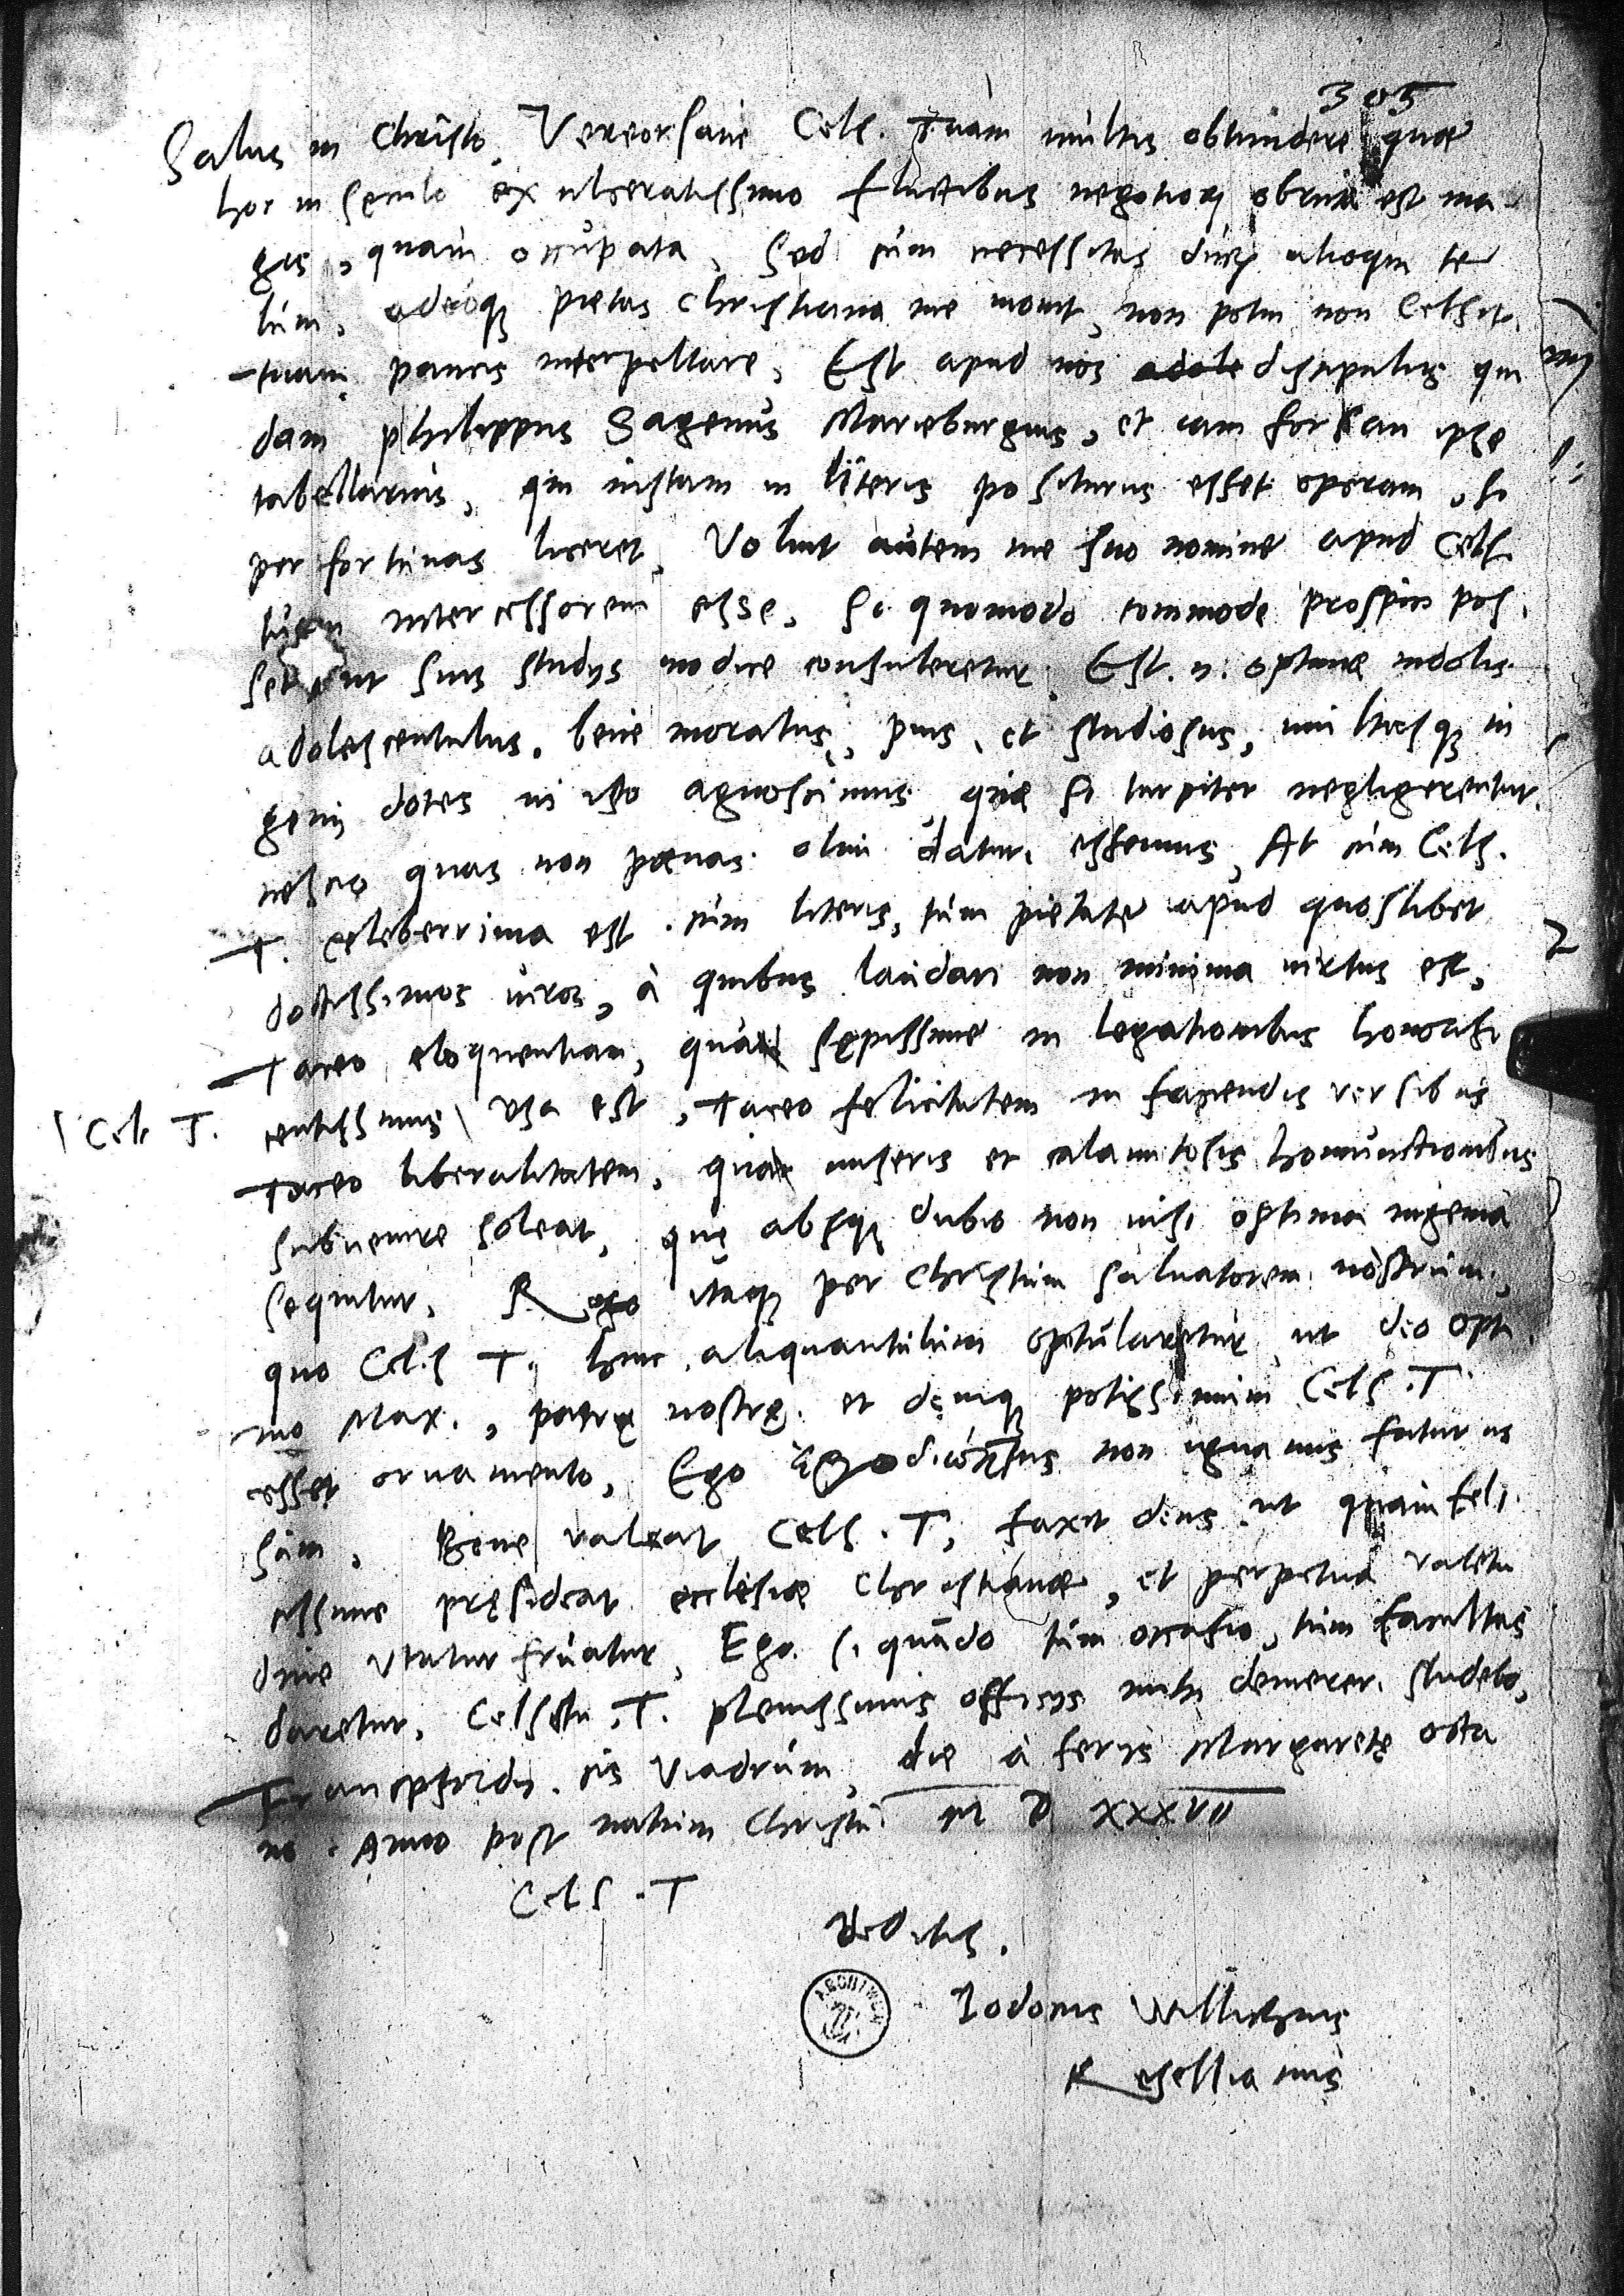 305
Salus in Christo. Vereor sane Cels. Tuam multis obtundere quae
hoc in sęculo exulceratissimo fluctibus negotiorum obruta est ma
gis, quam occupata. Sed cum necessitas durum alioqui te
lum, adeoque pietas christiana me movit, non potui non Celsit.
tuam paucis interpellare. Est apud nos adole discipulus qui
dam philippus Sagerus Marieburgius, et iam forsan ipse
tabellarius, qui iustam in literis positurus esset operam, si
per fortunas liceret. Voluit autem me suo nomine apud Cels.
tuam intercessorem esse, si quomodo commode prospici pos
set ut suis studijs modice consuleretur. Est .n. optimae indolis
adolescentulus, bene moratus, pius, et studiosus, multasque in
genij dotes in ipso agnoscimus, quae si turpiter negligerentur,
nescio quas non poenas olim daturi essemus, At cum Cels.
T. celeberrima est cum literis, tum pietate apud quoslibet
doctissimos viros, à quibus laudari non minima virtus est,
Taceo eloquentiam, qua sępissime in legationibus honorifi
centissimis \ usa est, Taceo felicitatem in faciendis versibus
\ Cels T.
Taceo liberalitatem, qua miseris et calamitosis homunctionibus
subvenire soleat, quę absque dubio non nisi optima ingenia
sequitur. Rogo itaque per Christum salvatorem nostrum,
quo Cels T. huic aliquantulum opitularetur ut deo opti
mo Max., patrię nostrę et denique potissimum Cels. T
esset ornamento, Ego non ignavus futurus
sum. Bene valeat Cels. T, faxit deus ut quam feli
cissime pręsideat ecclesiae Christianae, et perpetua valetu
dine utatur fruatur, Ego si quādo tum occasio, tum facultas
daretur, Celsitu. T. plenissimis officijs mihi demereri studebo,
Francphordij cis Viadrum, die à ferijs Margaretę octa
vo. Anno post natum Christū M D XXXVII
Cels. T
Deditiss.
Iodocus Willichius
Resellianus